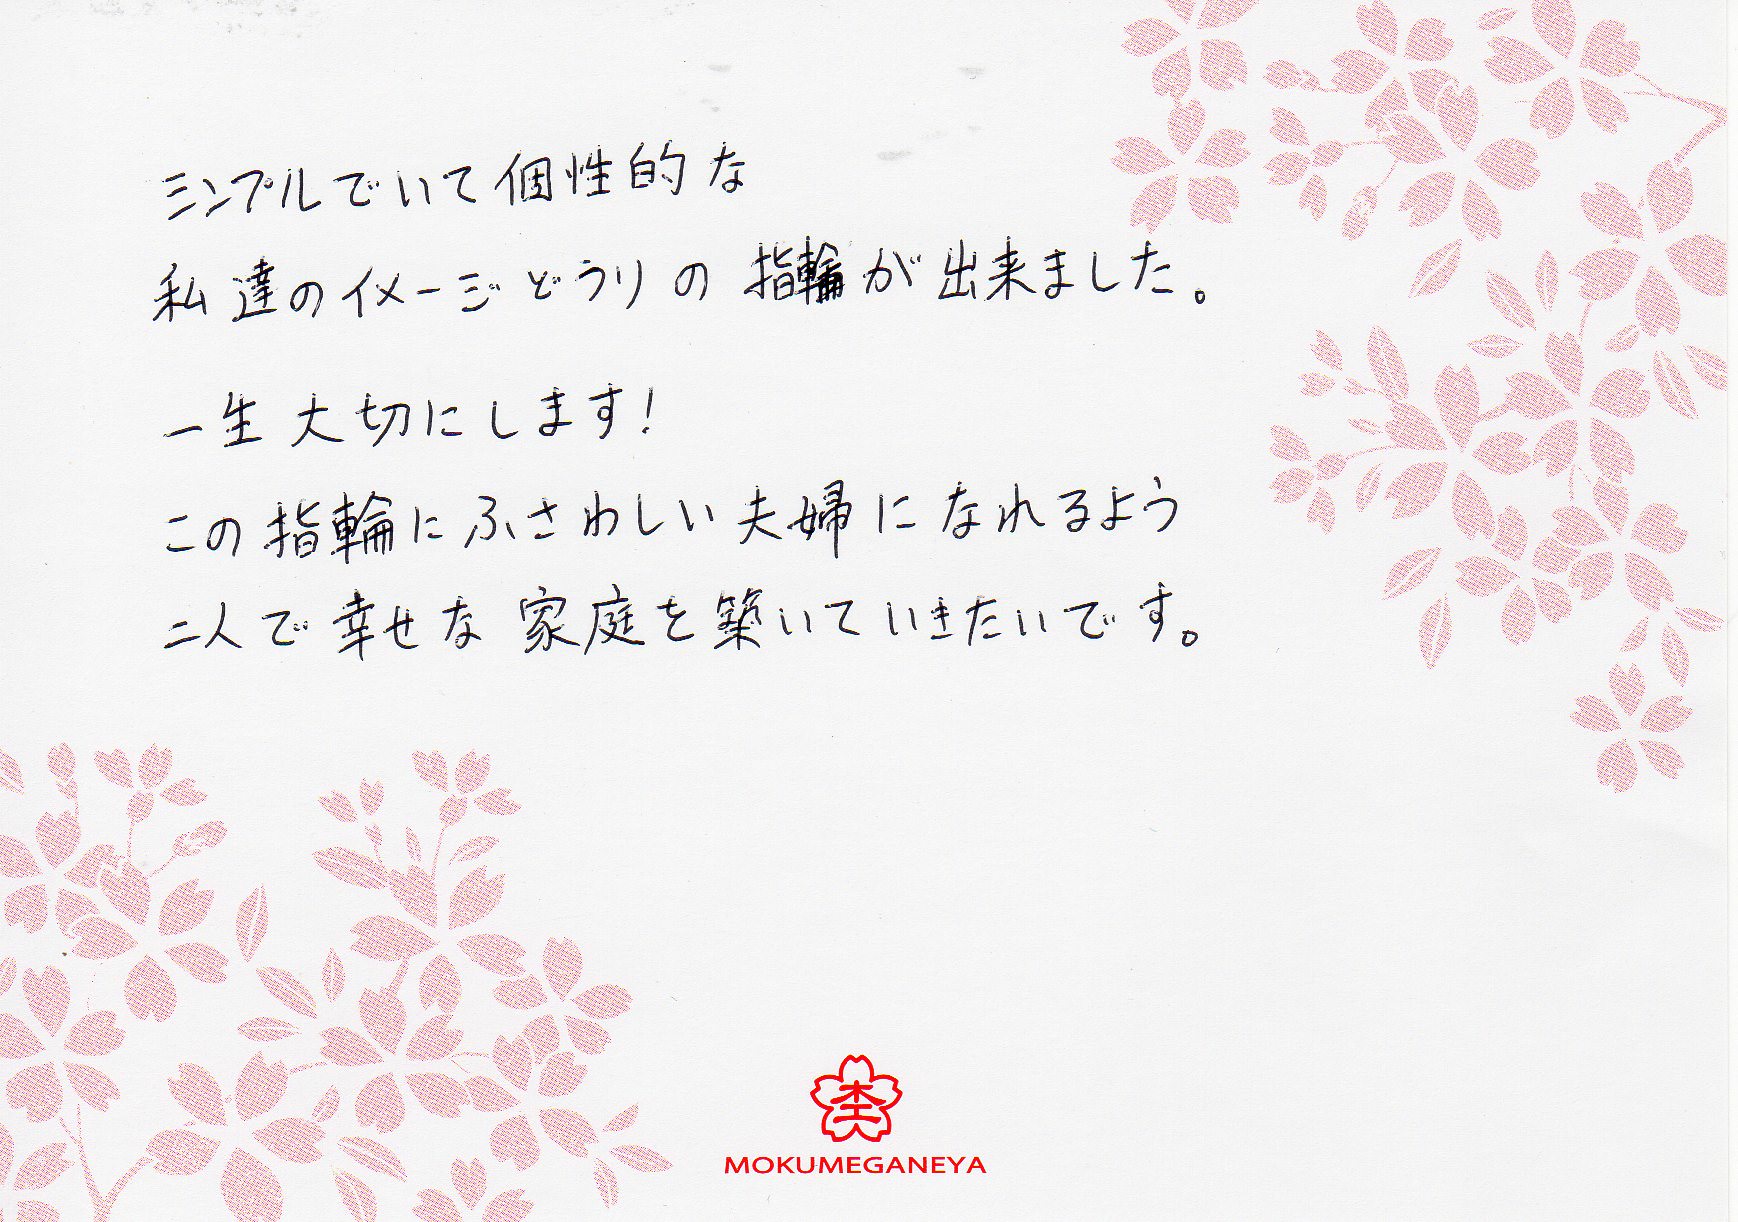 シンプルでいて個性的な
私達のイメージどうりの指輪が出来ました。
一生大切にします!
この指輪にふさわしい夫婦になれるよう
二人で幸せな家庭を築いていきたいです。
MOKUMEGANEYA